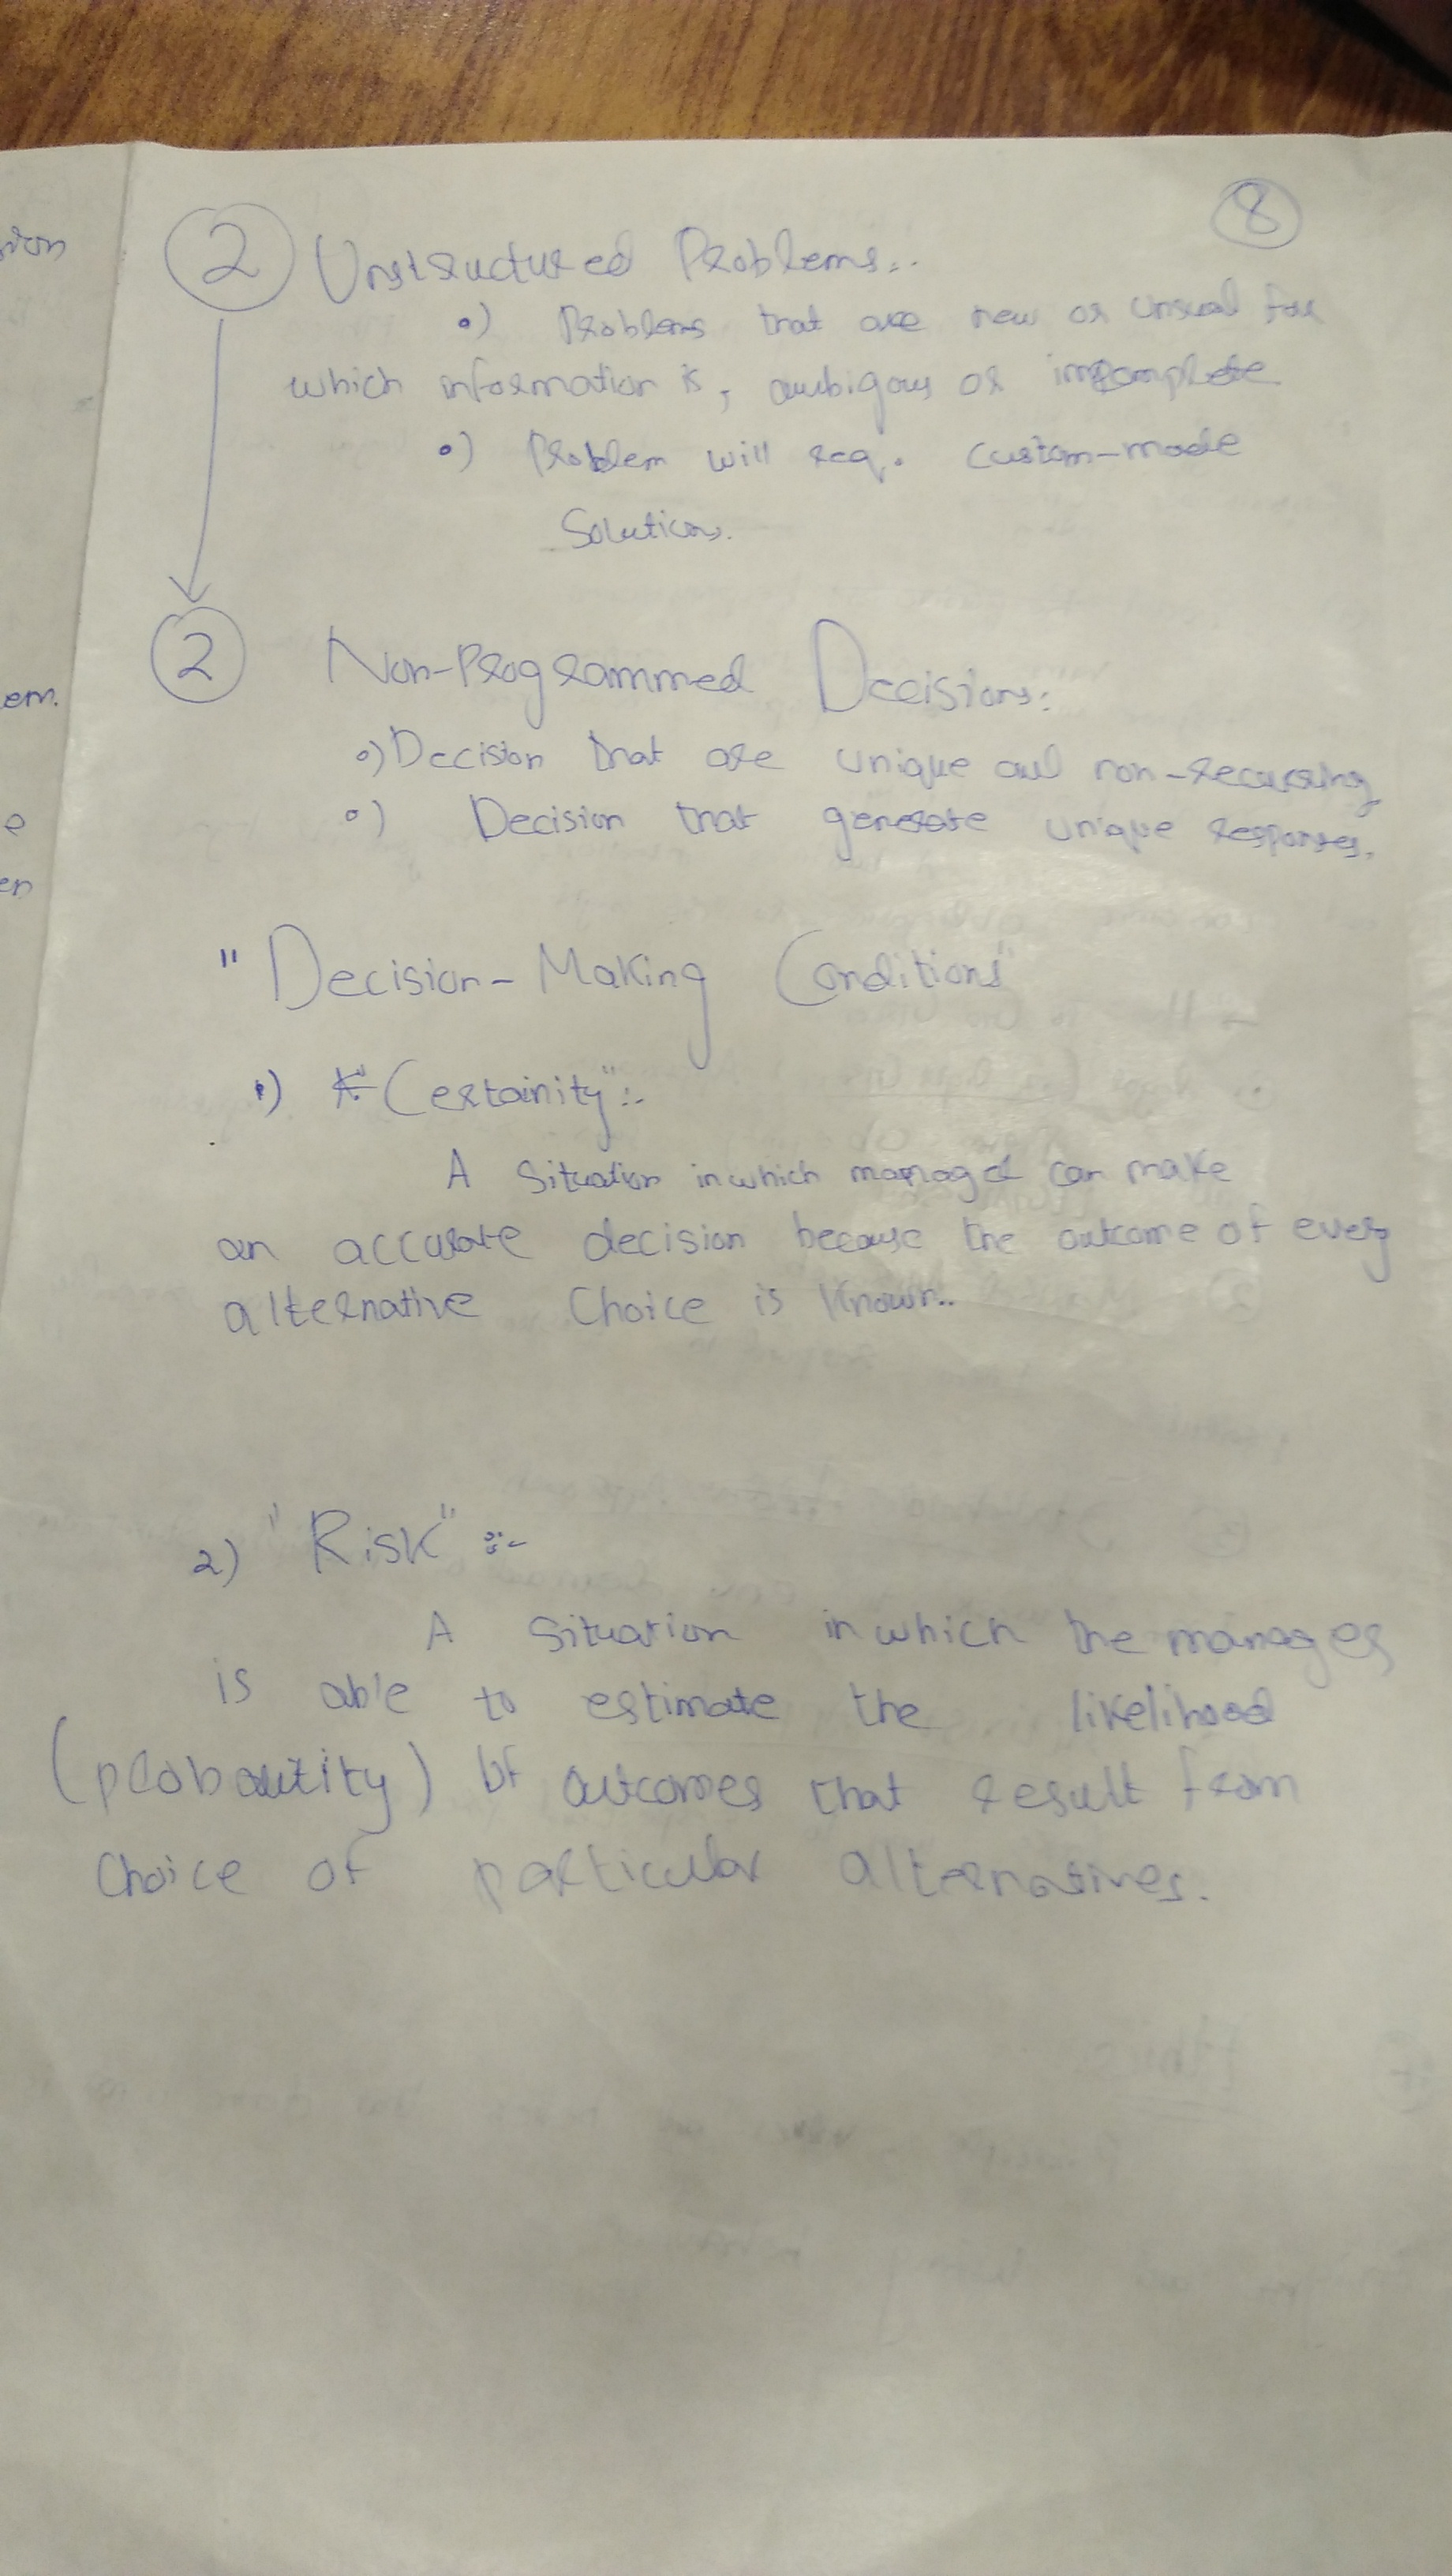 8
2 Unstructured Problems:.
•) Problems that are new or unsual for
which information is, ambigous or incomplete
•) Problem will req. custom-made
Solutions.
2 Non-Programmed Decisions:
•) Decision that are unique and non-recurring
•) Decision that generate unique responses.
"Decision-Making Conditions"
1) "Certainity":-
A Situation in which manager can make
an accurate decision because the outcome of every
alternative Choice is Known..
2) "Risk" ::-
A Situation in which the manager
is able to estimate the likelihood
(probability) of outcomes that result from
Choice of particular alternatives.